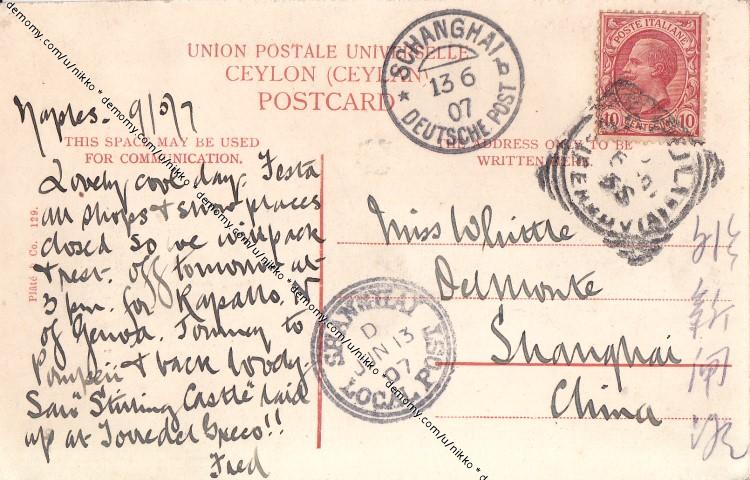 UNION POSTALE UNIVERSELLE
CEYLON (CEYLAN)
POSTCARD
THIS SPACE MAY BE USED
FOR COMMUNICATION.
ADDRESS ONLY TO BE
WRITTEN HERE
Plâté & Co. 129.
Naples. 9/5/7
Lovely cool day. Festa
all shops & show places
closed so we will pack
& rest. off tomorrow at
3 pm. for Rapallo, E
of Genoa. Journey to
Pompeii & back
Saw "Stirling Castle" laid
up at Torre del Greco!!
Fred
Miss Whittle
Delmonte
Shanghai
China
北
新
闸
POSTE ITALIANE
10 10
SCHANGHAI
13 6
07
DEUTSCHE POST
SHANGHAI
D
JUN 13
07
LOCAL POST
demomy.com/u/nikko * demomy.com/u/nikko * demomy.com/u/nikko * demomy.com/u/nikko * demomy.com/u/nikko *